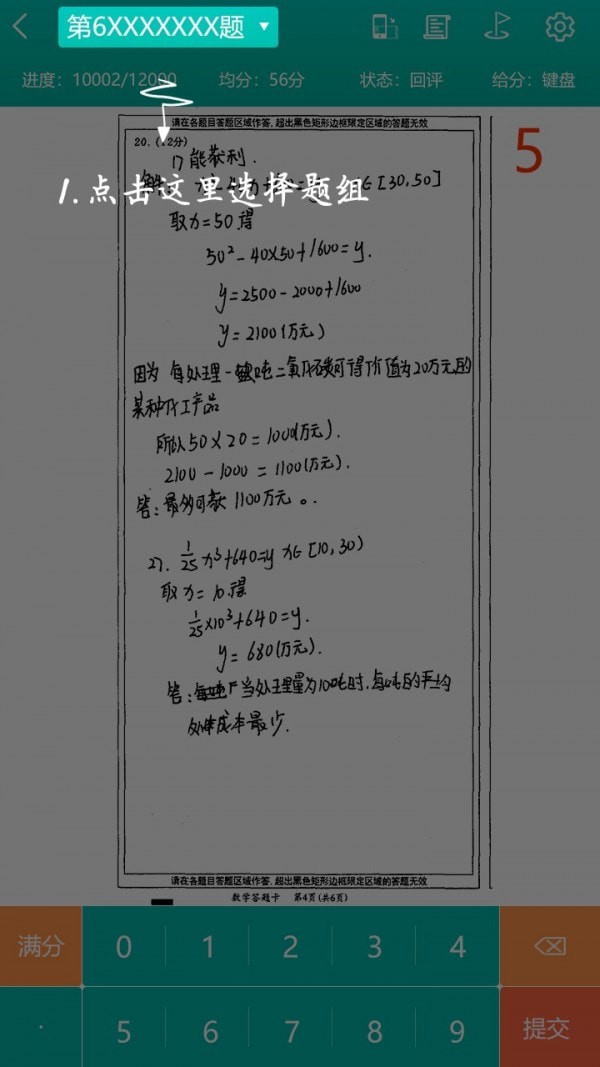 第6XXXXXXX题
进度：10002/12000 均分：56分 状态：回评 给分：键盘
请在各题目答题区域作答，超出黑色矩形边框限定区域的答题无效
5
20.（12分）
1）能获利.
1.点击这里选择题组
[30,50]
取x=50得
50²-40×50+1600=y.
y=2500-2000+1600
y=2100(万元)
因为 每处理一吨二氧化碳可得价值为20万元的
某种化工产品
所以50×20=1000(万元).
2100-1000=1100(万元).
答:最多可获1100万元。
2). 1/25 x³+640=y x∈[10,30)
取x=10.得
1/25×10³+640=y.
y=680(万元).
答:当处理量为10吨时,每吨的平均
处理成本最少.
请在各题目答题区域作答，超出黑色矩形边框限定区域的答题无效
数学答题卡 第4页(共6页)
满分 0 1 2 3 4
. 5 6 7 8 9 提交